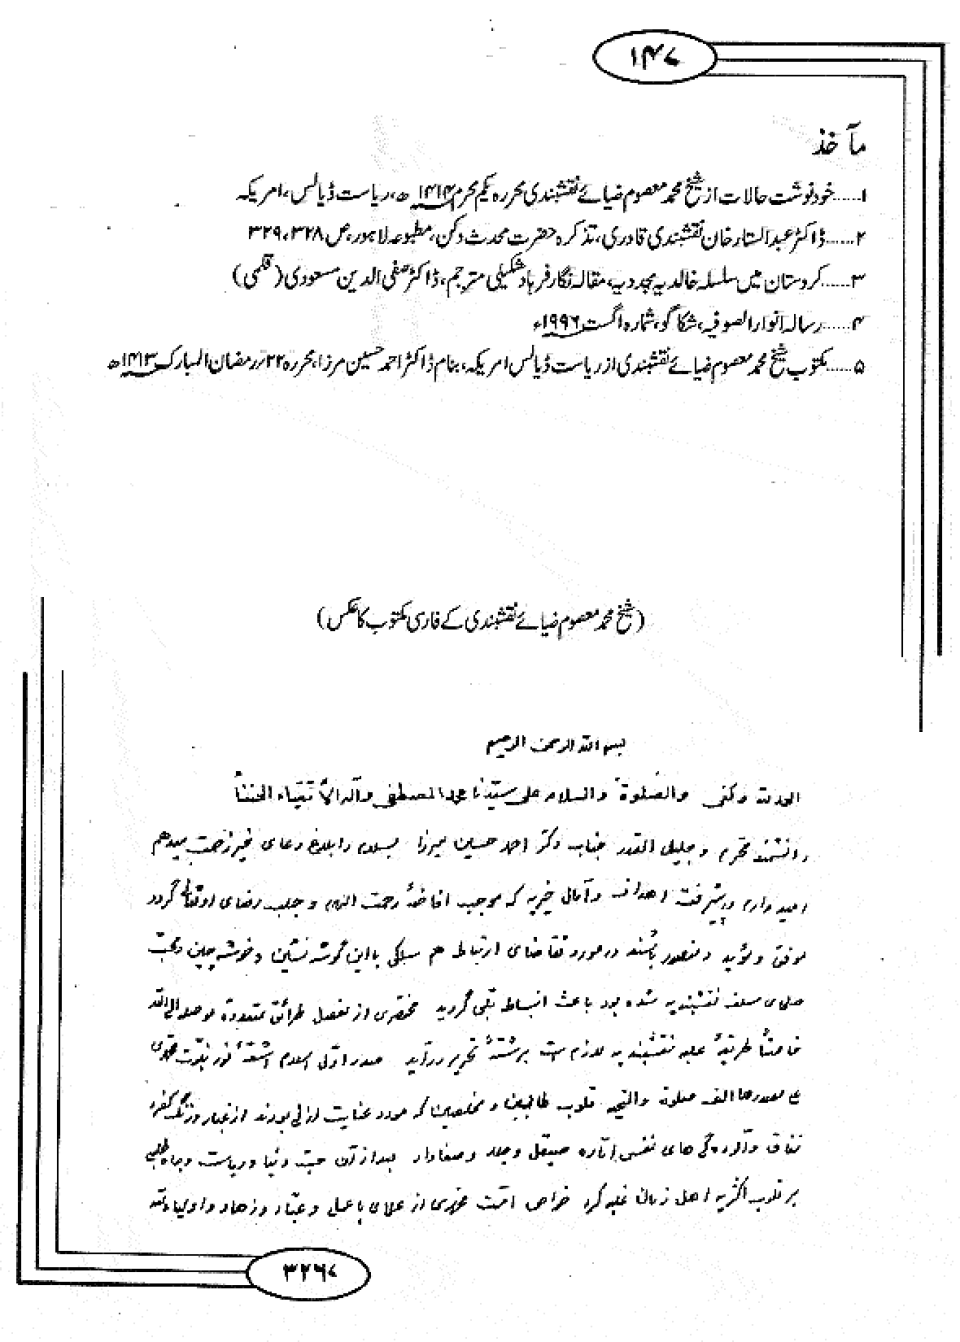 ۱۴۷
مآخذ
۱.....خودنوشت حالات از شیخ محمد معصوم ضیائے نقشبندی محررہ یکم محرم ۱۴۱۴ھ، ریاست ڈیالس، امریکہ
۲.....ڈاکٹر عبدالستار خان نقشبندی قادری، تذکرہ حضرت محدث دکن، مطبوعہ لاہور، ص ۳۲۸، ۳۲۹
۳.....کردستان میں سلسلہ خالدیہ مجددیہ، مقالہ نگار فرہاد شکیلی مترجم، ڈاکٹر صفی الدین مسعودی (قلمی)
۴.....رسالہ انوار الصوفیہ، شکاگو، شمارہ اگست ۱۹۹۶ء
۵.....مکتوب شیخ محمد معصوم ضیائے نقشبندی از ریاست ڈیالس امریکہ، بنام ڈاکٹر احمد حسین مرزا، محررہ ۲۲ر رمضان المبارک ۱۴۱۳ھ
(شیخ محمد معصوم ضیائے نقشبندی کے فارسی مکتوب کا عکس)
بسم الله الرحمن الرحیم
الحمدلله وکفی والصلوة والسلام علی سیدنا محمد المصطفی وآله الأتقیاء الحنفاً
دانشمند محترم و جلیل القدر جناب دکتر احمد حسین میرزا بسلام و ابلاغ دعای خیر زحمت میدهم
امیدوارم در پیشرفت اهداف و آمال خیریه که موجب افاضهٔ رحمت الهی و جلب رضای او تعالی گردد
موفق و مؤید و منصور باشند در مورد تقاضای ارتباط هم سلکی با این گوشه نشین و خوشه چین
سلف نقشبندیه شده بود باعث انبساط قلبی گردید مختصری از مفصل طرائق متعدده موصوله الی الله
خاصتاً طریقهٔ علیه نقشبندیه لازم است برشتهٔ تحریر درآید صدر اول اسلام اشعهٔ نور نبوت محمدی
علی مصدرها الف صلوة والتحیه قلوب طالبین و مخلصین که مورد عنایت ازلی بودند از غبار و زنگ کفر و
نفاق و آلودگی های نفس اماره صیقل و جلا و صفا داد بعد از آن حب دنیا و ریاست و جاه طلبی
بر قلوب اکثریه اهل زمان غلبه کرد خواص امت محمدی از علمای باعمل و عباد و زهاد و اولیاء
۳۲۶۷